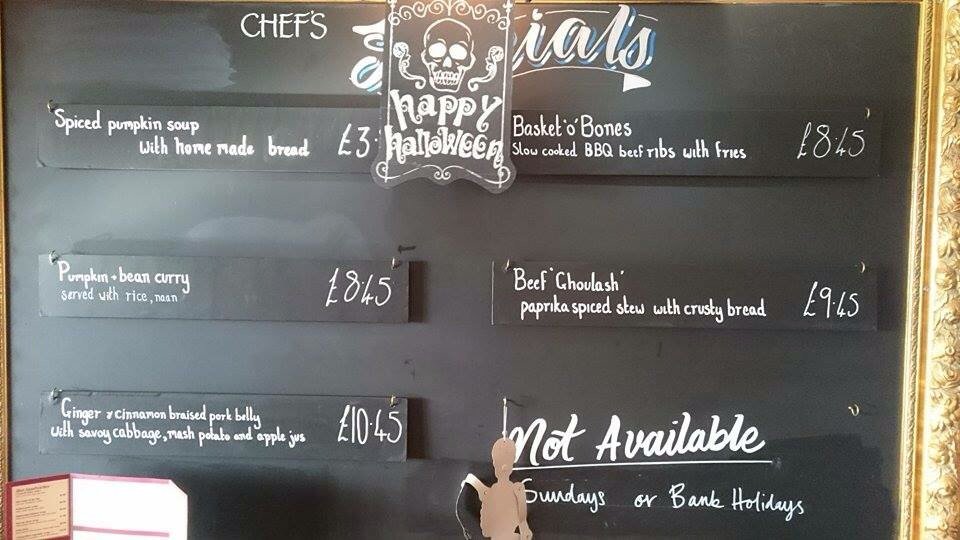 CHEF'S
happy
halloween
Spiced pumpkin soup
with home made bread £3
Pumpkin + bean curry
served with rice, naan £8.45
Ginger & cinnamon braised pork belly
with savoy cabbage, mash potato and apple jus £10.45
Basket 'o' Bones
Slow cooked BBQ beef ribs with fries £8.45
Beef 'Ghoulash'
paprika spiced stew with crusty bread £9.45
Not Available
Sundays or Bank Holidays